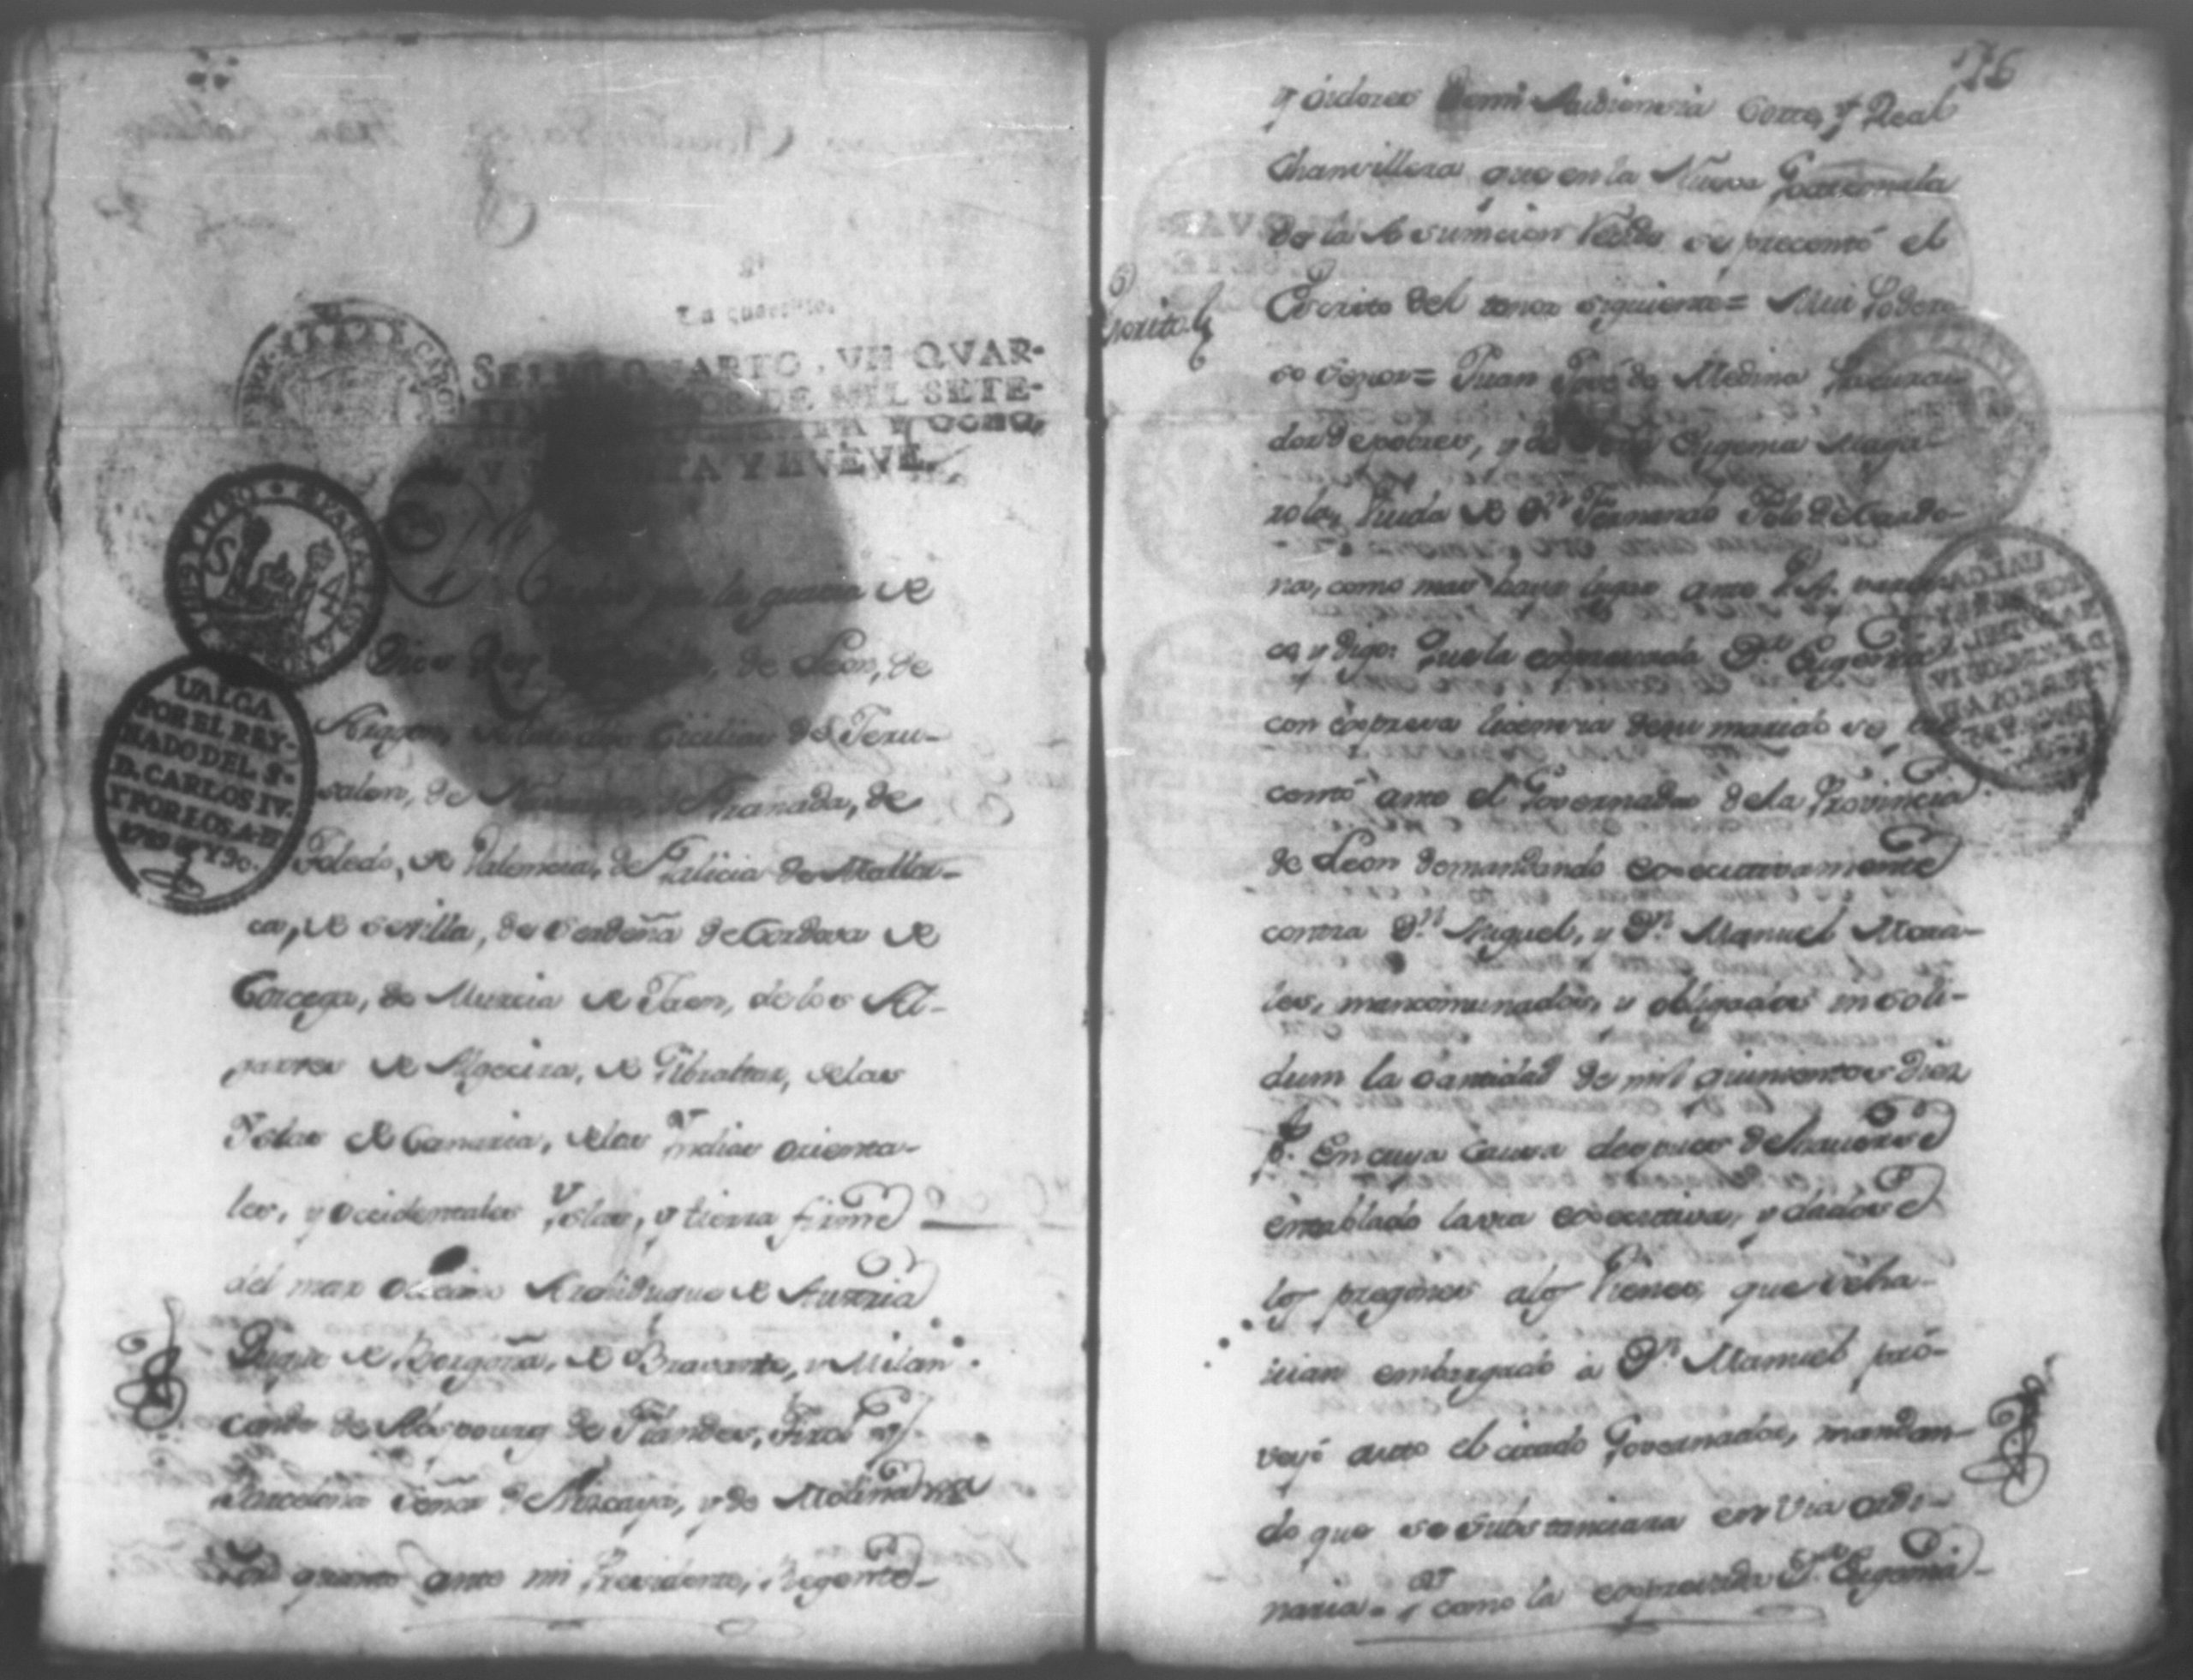 Un quartillo.
SELLO QVARTO, VN QVAR-
TILLO, AÑOS DE MIL SETE-
CIENTOS OCHENTA Y OCHO,
Y OCHENTA Y NVEVE.
VALGA
POR EL REY-
NADO DEL S.
D. CARLOS IV.
Y POR LOS A. DE
1789 Y 90.
Carlos por la gracia de
Dios Rey de Castilla, de Leon, de
Aragon, de las dos Cicilias de Jeru-
salen, de Navarra, de Granada, de
Toledo, de Valencia, de Galicia de Mallor-
ca, de Sevilla, de Serdeña de Cordova de
Corcega, de Murcia de Jaen, de los Al-
garves de Algecira, de Gibraltar, delas
Yslas de Canaria, delas Yndias orienta-
les, y occidentales Yslas, y tierra firme
del mar occeano Archiduque de Austria
Duque de Borgoña, de Bravante, y Milan
conde de Abspourg de Flandes, Tirol y
Barcelona Señor de Viscaya, y de Molina &a
Por quanto ante mi Presidente, Regente
76
y óidores demi Audiencia Corte, y Real
Chancilleria que en la Nueva Guatemala
de la Asumcion recide se precentó el
Escrito
Escrito del tenor siguiente = Mui Podero
so Señor = Juan José de Medina Procura-
dor de pobres, y de Doña Eugenia Maga-
rola, Viuda de Dn. Fernando Polo de Cardo-
na, como mas haya lugar ante V.A. paresc-
co, y digo: Que la expresada Da. Eugenia
con expresa licencia desu marido se pre-
centó ante el Governador dela Provincia
de Leon demandando executivamente
contra Dn. Miguel, y Dn. Manuel Mora-
les, mancomunados, y obligados in soli-
dum la cantidad de mil quinientos diez
p. En cuya causa despues de haverse
entablado lavia executiva, y dadose
los pregones alos Vienes, que seha-
vian embargado á Dn. Manuel pró-
veyó auto el citado Governador, mandan-
do que se substanciara en Via ordi-
naria. Y como la expresada Da. Eugenia